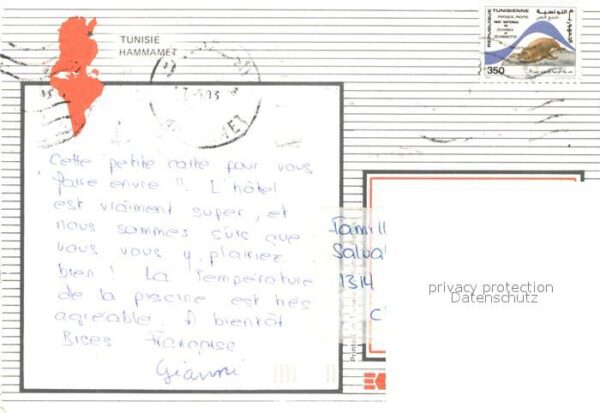 TUNISIE
HAMMAMET
REPUBLIQUE TUNISIENNE
PHOQUE-MOINE
PARC NATIONAL
DE
ZEMBRA
ET
ZEMBRETTA
350
Cette petite carte pour vous
faire envie !! L'hôtel
est vraiment super, et
nous sommes sûrs que
vous vous y plairiez
bien ! La température
de la piscine est très
agréable. A bientôt
Bises Françoise
Gianni
Famill
Salva
1314
C
privacy protection
Datenschutz